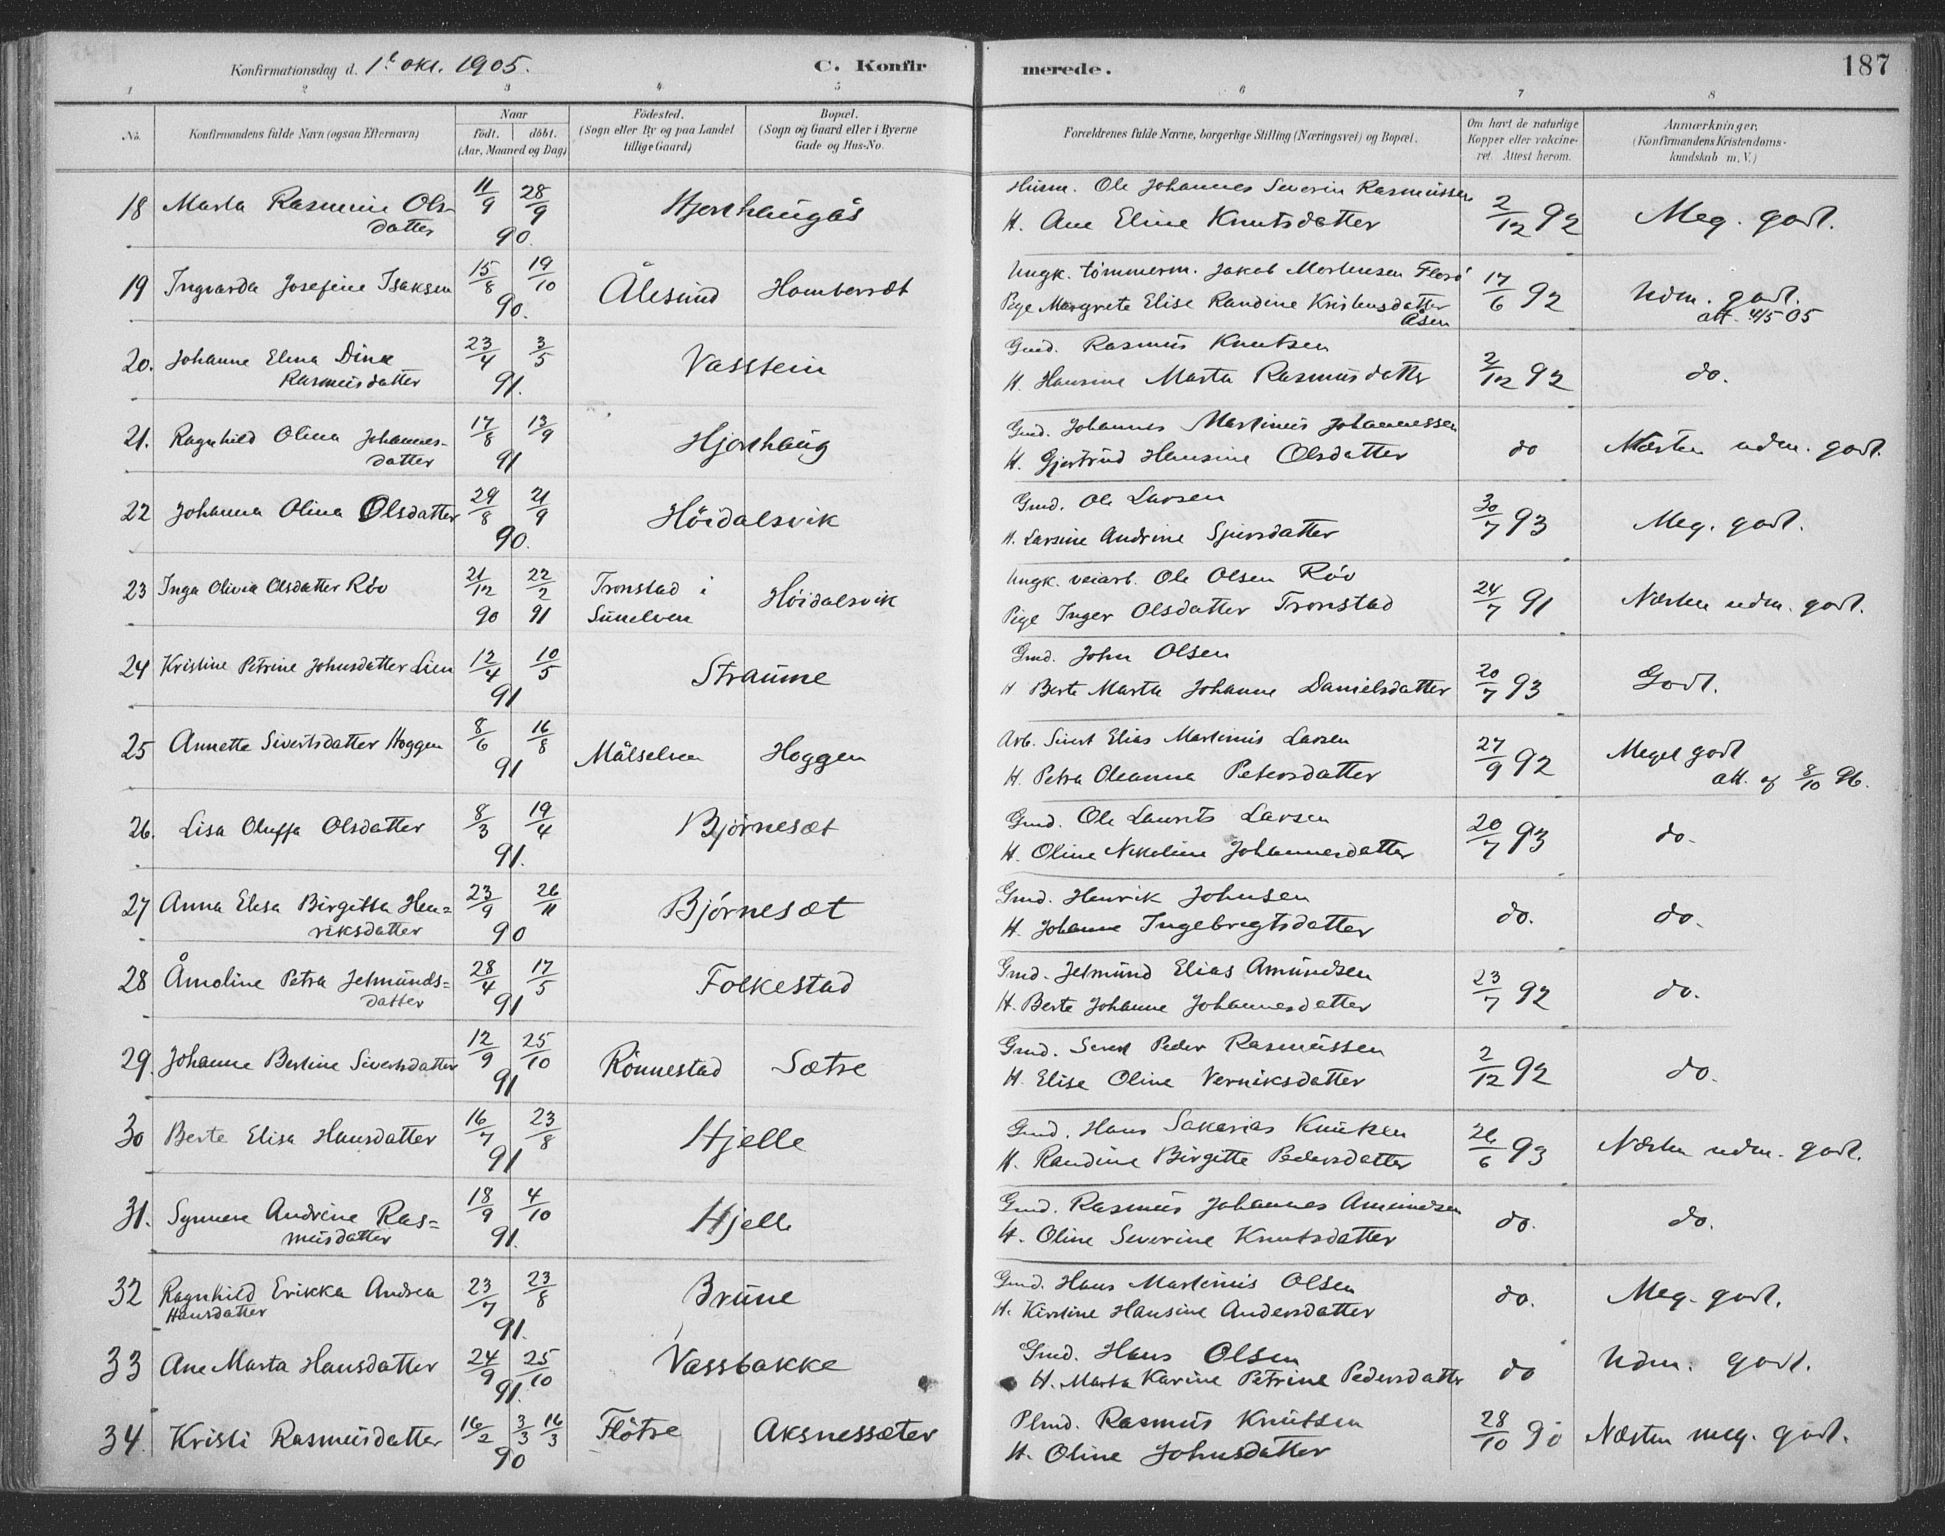 Konfirmationsdag d. 1ᵗ okt. 1905.
C. Konfirmerede.
187
1 2 3 4 5 6 7 8
No. Konfirmandens fulde Navn (ogsaa Efternavn) Naar födt. döbt. (Aar, Maaned og Dag) Födested. (Sogn eller By og paa Landet tillige Gaard) Bopæl. (Sogn og Gaard eller i Byerne Gade og Hus-No. Forældrenes fulde Navne, borgerlige Stilling (Næringsvei) og Bopæl. Om havt de naturlige Kopper eller vakcineret. Attest herom. Anmærkninger. (Konfirmandens Kristendomskundskab m. V.)
18 Marta Rasmine Olsdatter 11/9 28/9 90. Hjorthaugås Husm. Ole Johannes Severin Rasmussen
H. Ane Eline Knutsdatter 2/12 92 Meg. godt.
19 Ingvarda Josefine Isaksen 15/8 19/10 90. Ålesund Hambersæt Ungk. tømmerm. Jakob Mortensen Florø
Pige Margrete Elise Randine Kristensdatter Åsen 17/6 92 Udm. godt. att. 4/5 05
20. Johanne Elena Dina Rasmusdatter 23/4 3/5 91. Vasstein Gmd. Rasmus Knutsen
H. Hansine Marta Rasmusdatter 2/12 92 do.
21. Ragnhild Olina Johannesdatter 17/8 13/9 91 Hjorthaug Gmd. Johannes Martinus Johannessen
H. Gjertrud Hansine Olsdatter do Næsten udm. godt.
22 Johanna Olina Olsdatter 29/8 21/9 90. Höidalsvik Gmd. Ole Larsen
H. Larsine Andrine Sjursdatter 30/7 93 Meg. godt.
23 Inga Olivia Olsdatter Röv 21/12 90 22/2 91 Tronstad i Sunelven Höidalsvik Ungk. veiarb. Ole Olsen Röv
Pige Inger Olsdatter Tronstad 24/7 91 Næsten udm. godt.
24 Kristine Petrine Johnsdatter Lien 12/4 10/5 91 Straume Gmd. John Olsen
H Berte Marta Johanne Danielsdatter 20/7 93 Godt.
25 Annette Sivertsdatter Hoggen 8/6 16/8 91 Målselven Hoggen Arb. Sivert Elias Martinus Larsen
H. Petra Oleanna Petersdatter 27/9 92 Meget godt att. af 8/10 96.
26. Lisa Oluffa Olsdatter 8/3 19/4 91. Bjørnesæt Gmd. Ole Laurits Larsen
H. Oline Nikoline Johannesdatter 20/7 93 do.
27 Anna Elisa Birgitta Henriksdatter 23/9 26/11 90 Bjørnesæt Gmd. Henrik Johnsen
H. Johanne Ingebrigtsdatter do. do.
28 Åmoline Petra Jetmundsdatter 28/4 17/5 91 Folkestad Gmd. Jetmund Elias Amundsen
H. Berte Johanne Johannesdatter 23/7 92 do.
29. Johanne Bertine Sivertsdatter 12/9 25/10 91 Rönnestad Sætre Gmd. Sivert Peder Rasmussen
H. Elise Oline Verniksdatter 2/12 92 do.
30 Berte Elisa Hansdatter 16/7 23/8 91 Hjelle Gmd. Hans Sakarias Knutsen
H. Randine Birgitte Pedersdatter 26/6 93 Næsten udm. godt.
31. Synnøve Andrine Rasmusdatter 18/9 4/10 91. Hjelle Gmd. Rasmus Johannes Amundsen
H. Oline Severine Knutsdatter do. do.
32 Ragnhild Erikka Andrea Hansdatter 23/7 23/8 91. Brune Gmd. Hans Martinus Olsen
H. Kirstine Hansine Andersdatter do. Meg. godt.
33 Ane Marta Hansdatter 24/9 25/10 91. Vassbakke Gmd. Hans Olsen
H. Marta Karine Petrine Pedersdatter do Udm. godt.
34. Kristi Rasmusdatter 16/2 3/3 16/3 90 Flötre Aksnessæter Plmd. Rasmus Knutsen
H. Oline Johnsdatter 28/10 90 Næsten meg. godt.